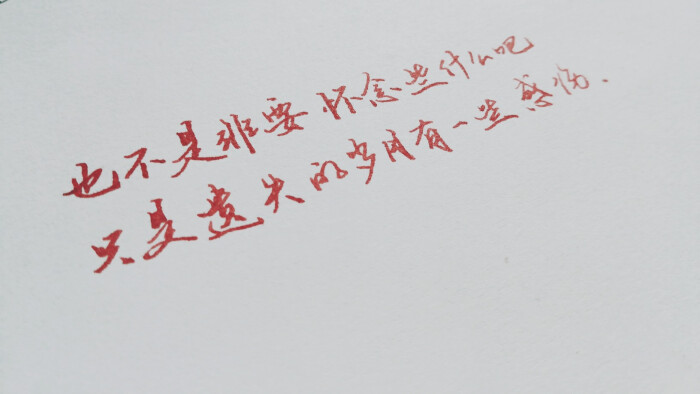 也不是非要怀念些什么吧
只是遗失的岁月有一些感伤.